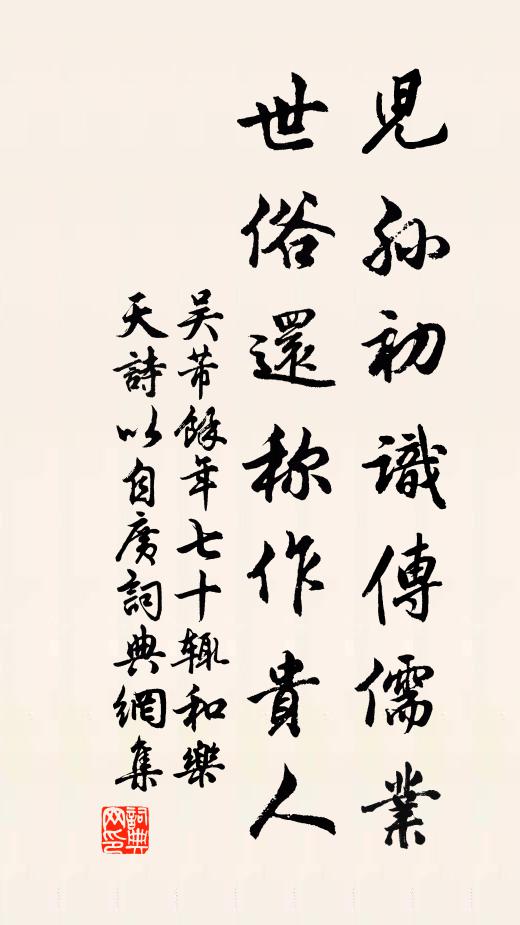 兒孫初識傳儒業
世俗還称作貴人
吴芾餘年七十輒和樂
天詩以自廣詞典網集
詞典
网印